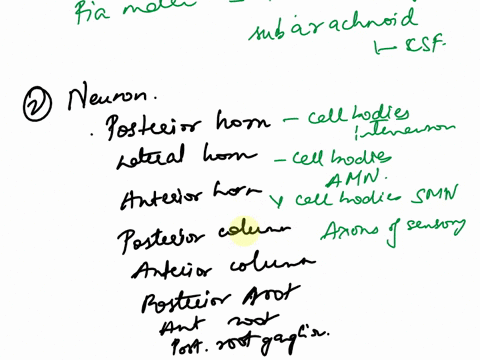 Pia mater –
subarachnoid
↳ CSF.
② Neuron.
. Posterior horn – cell bodies
interneuron
Lateral horn – cell bodies
AMN.
Anterior horn cell bodies SMN
Posterior column Axons of sensory
Anterior column
Posterior root
Ant root
Post. root ganglia.